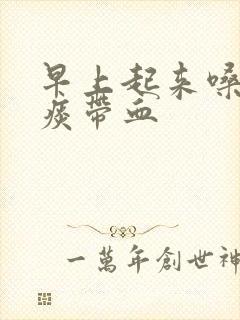 早上起来嗓
痰带血
一萬年創世神